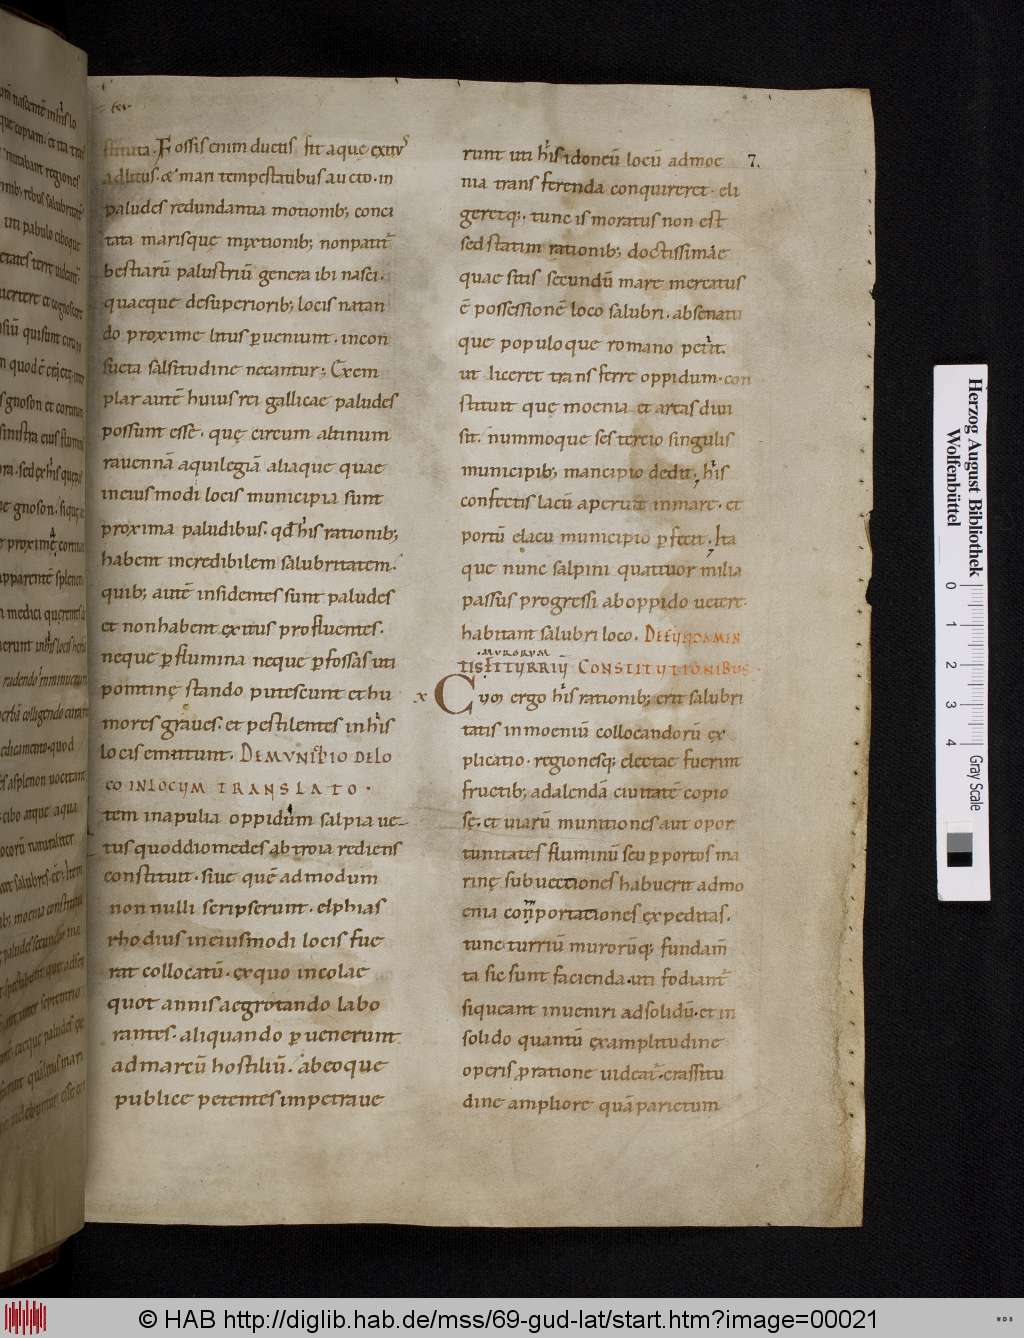 stituta. Fossis enim ductis. fit aque exitꝰ
ad litus. & mari tempestatibus aucto. in
paludes redundantia motionib; conci
tata marisque mixtionib; non patit᷑
bestiarū palustriū genera ibi nasci.
quaeque desuperiorib; locis natan
do proxime litus ꝑueniunt. incon
sueta salsitudine necantur; Exem
plar autē huius rei gallicae paludes
possunt esse. quę circum altinum
rauennā aquilegiā aliaque quae
in eius modi locis municipia sunt
proxima paludibus. qđ his rationib;
habent incredibilem salubritatem.
quib; autē insidentes sunt paludes
et non habent exitus profluentes.
neque ꝑ flumina neque ꝑ fossas uti
pontinę stando putescunt et hu
mores graues. et pestilentes in his
locis emittunt. DE MVNICIPIO DE LO
CO IN LOCVM TRANSLATO.
tem in apulia oppidum salpia ue
tus quod diomedes ab troia rediens
constituit. siue quē ad modum
non nulli scripserunt. elphias
rhodius in eiusmodi locis fue
rat collocatū. ex quo incolae
quot annis aegrotando labo
rantes. aliquando ꝑuenerunt
ad marcū hostiliū. ab eoque
publice petentes impetraue
7.
runt uti his idoneū locū ad moe
nia transferenda conquireret. eli
geretq;. tunc is moratus non est
sed statim rationib; doctissimae
quae sitis secundū mare mercatus
ē possessionē loco salubri. ab senatu
que populoque romano petiit.
ut liceret transferre oppidum. con
stituit que moenia et areas diui
sit. nummoque sestercio singulis
municipib; mancipio dedit. his
confectis lacū aperuit in mare. et
portū e lacu municipio ꝑfecit. Ita
que nunc salpini quattuor milia
passus progressi ab oppido uetere.
habitant salubri loco. DE FVNDAMEN
.MVRORVM
TIS ET TVRRIV CONSTITVTIONIBVS.
x Cum ergo his rationib; erit salubri
tatis in moeniū collocandorū ex
plicatio. regionesq; electae fuerint
fructib; ad alendā ciuitatē copio
sę. et uiarū munitiones aut opor
tunitates fluminū seu ꝑ portos ma
rinę subuectiones habuerit ad mo
enia conportationes expeditas.
tunc turriū murorūq; fundam̄
ta sic sunt facienda. uti fodiant᷑
si queant inueniri ad solidū. et in
solido quantū ex amplitudine
operis ꝓ ratione uideat᷑. crassitu
dine ampliore quā parietum
Herzog August Bibliothek
Wolfenbüttel
0 1 2 3 4
Gray Scale
© HAB http://diglib.hab.de/mss/69-gud-lat/start.htm?image=00021